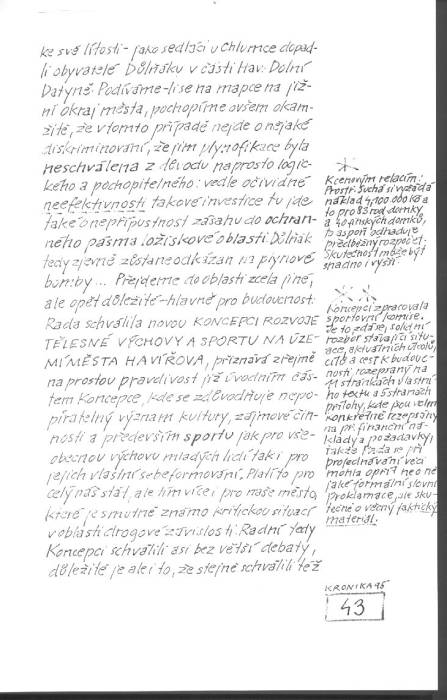 ke své lítosti - jako sedláci u Chlumce dopad-
li obyvatelé Důlňáku v části Hav. Dolní
Datyně. Podíváme-li se na mapce na již-
ní okraj města, pochopíme ovšem okam-
žitě, že v tomto případě nejde o nějaké
diskriminování, že jim plynofikace byla
neschválena z důvodu naprosto logic-
kého a pochopitelného: vedle očividné
neefektivnosti takové investice tu jde
také o nepřípustnost zásahu do ochran-
ného pásma ložiskové oblasti. Důlňák
tedy zjevně zůstane odkázán na plynové
bomby... Přejdeme do oblasti zcela jiné,
ale opět důležité - hlavně pro budoucnost:
Rada schválila novou KONCEPCI ROZVOJE
TĚLESNÉ VÝCHOVY A SPORTU NA ÚZE-
MÍ MĚSTA HAVÍŘOVA, přiznává zřejmě
naprostou pravdivost již úvodním čás-
tem Koncepce, kde se zdůvodňuje nepo-
piratelný význam kultury, zájmové čin-
nosti a především sportu jak pro vše-
obecnou výchovu mladých lidí tak i pro
jejich vlastní sebeformování. Platí to pro
celý náš stát, ale tím více i pro naše město,
které je smutně známo kritickou situací
v oblasti drogové závislosti. Radní tedy
Koncepci schválili asi bez větší debaty,
důležité je ale i to, že stejně schválili též
*
K cenovým relacím:
Prostř. Suchá si vyžádá
náklad 4,100.000 Kč a
to pro 83 rod. domky
a 40 finských domků,
to aspoň odhaduje
předběžný rozpočet.
Skutečnost může být
snadno i vyšší.
**
Koncepci zpracovala
sportovní komise.
Je to, zdá se, solidní
rozbor stávající situ-
ace, aktuálních úkolů,
cílů a cest k budouc-
nosti, rozepraný na
11 stránkách vlastní-
ho textu a 5 stranách
přílohy, kde jsou velmi
konkrétně rozepsány
na př. finanční ná-
klady a požadavky,
takže Rada se při
projednávání věci
mohla opřít ne o ně-
jaké formální slovní
proklamace, ale sku-
tečně o věcný faktický
materiál.
KRONIKA 95
43